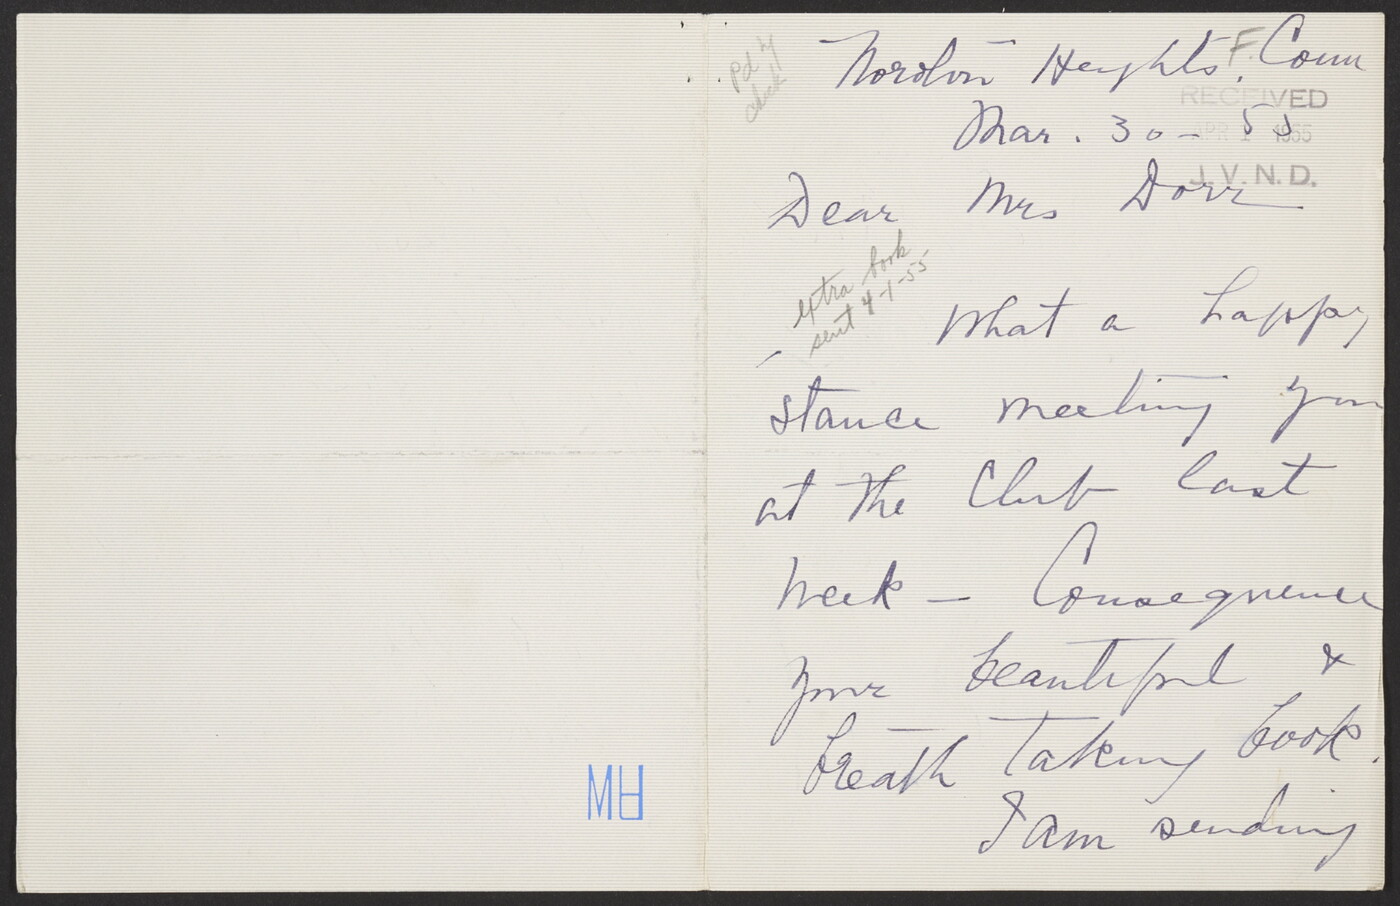 Pd by
check
Noroton Heights, Conn
F.
RECEIVED
APR 1 1955
J.V.N.D.
Mar. 30 - 55
Dear Mrs Dorr
extra book
sent 4-1-55
What a happy
stance meeting you
at the Club last
week — Consequence
your beautiful &
breath taking book.
I am sending